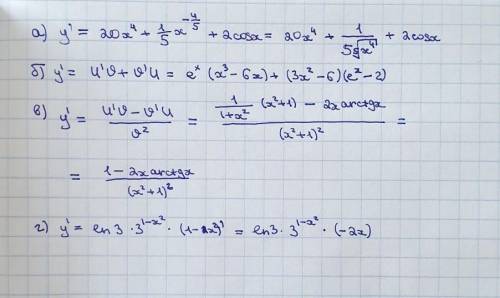 а) y' = 20x⁴ + 1/5 x^(-4/5) + 2cosx = 20x⁴ + 1/(5 ⁵√x⁴) + 2cosx
б) y' = U'V + V'U = eˣ (x³ - 6x) + (3x² - 6)(eˣ - 2)
в) y' = (U'V - V'U)/V² = (1/(1+x²) (x²+1) - 2x arctgx)/(x²+1)² =
= (1 - 2x arctgx)/(x²+1)²
г) y' = ln3 · 3^(1-x²) · (1-x²)' = ln3 · 3^(1-x²) · (-2x)